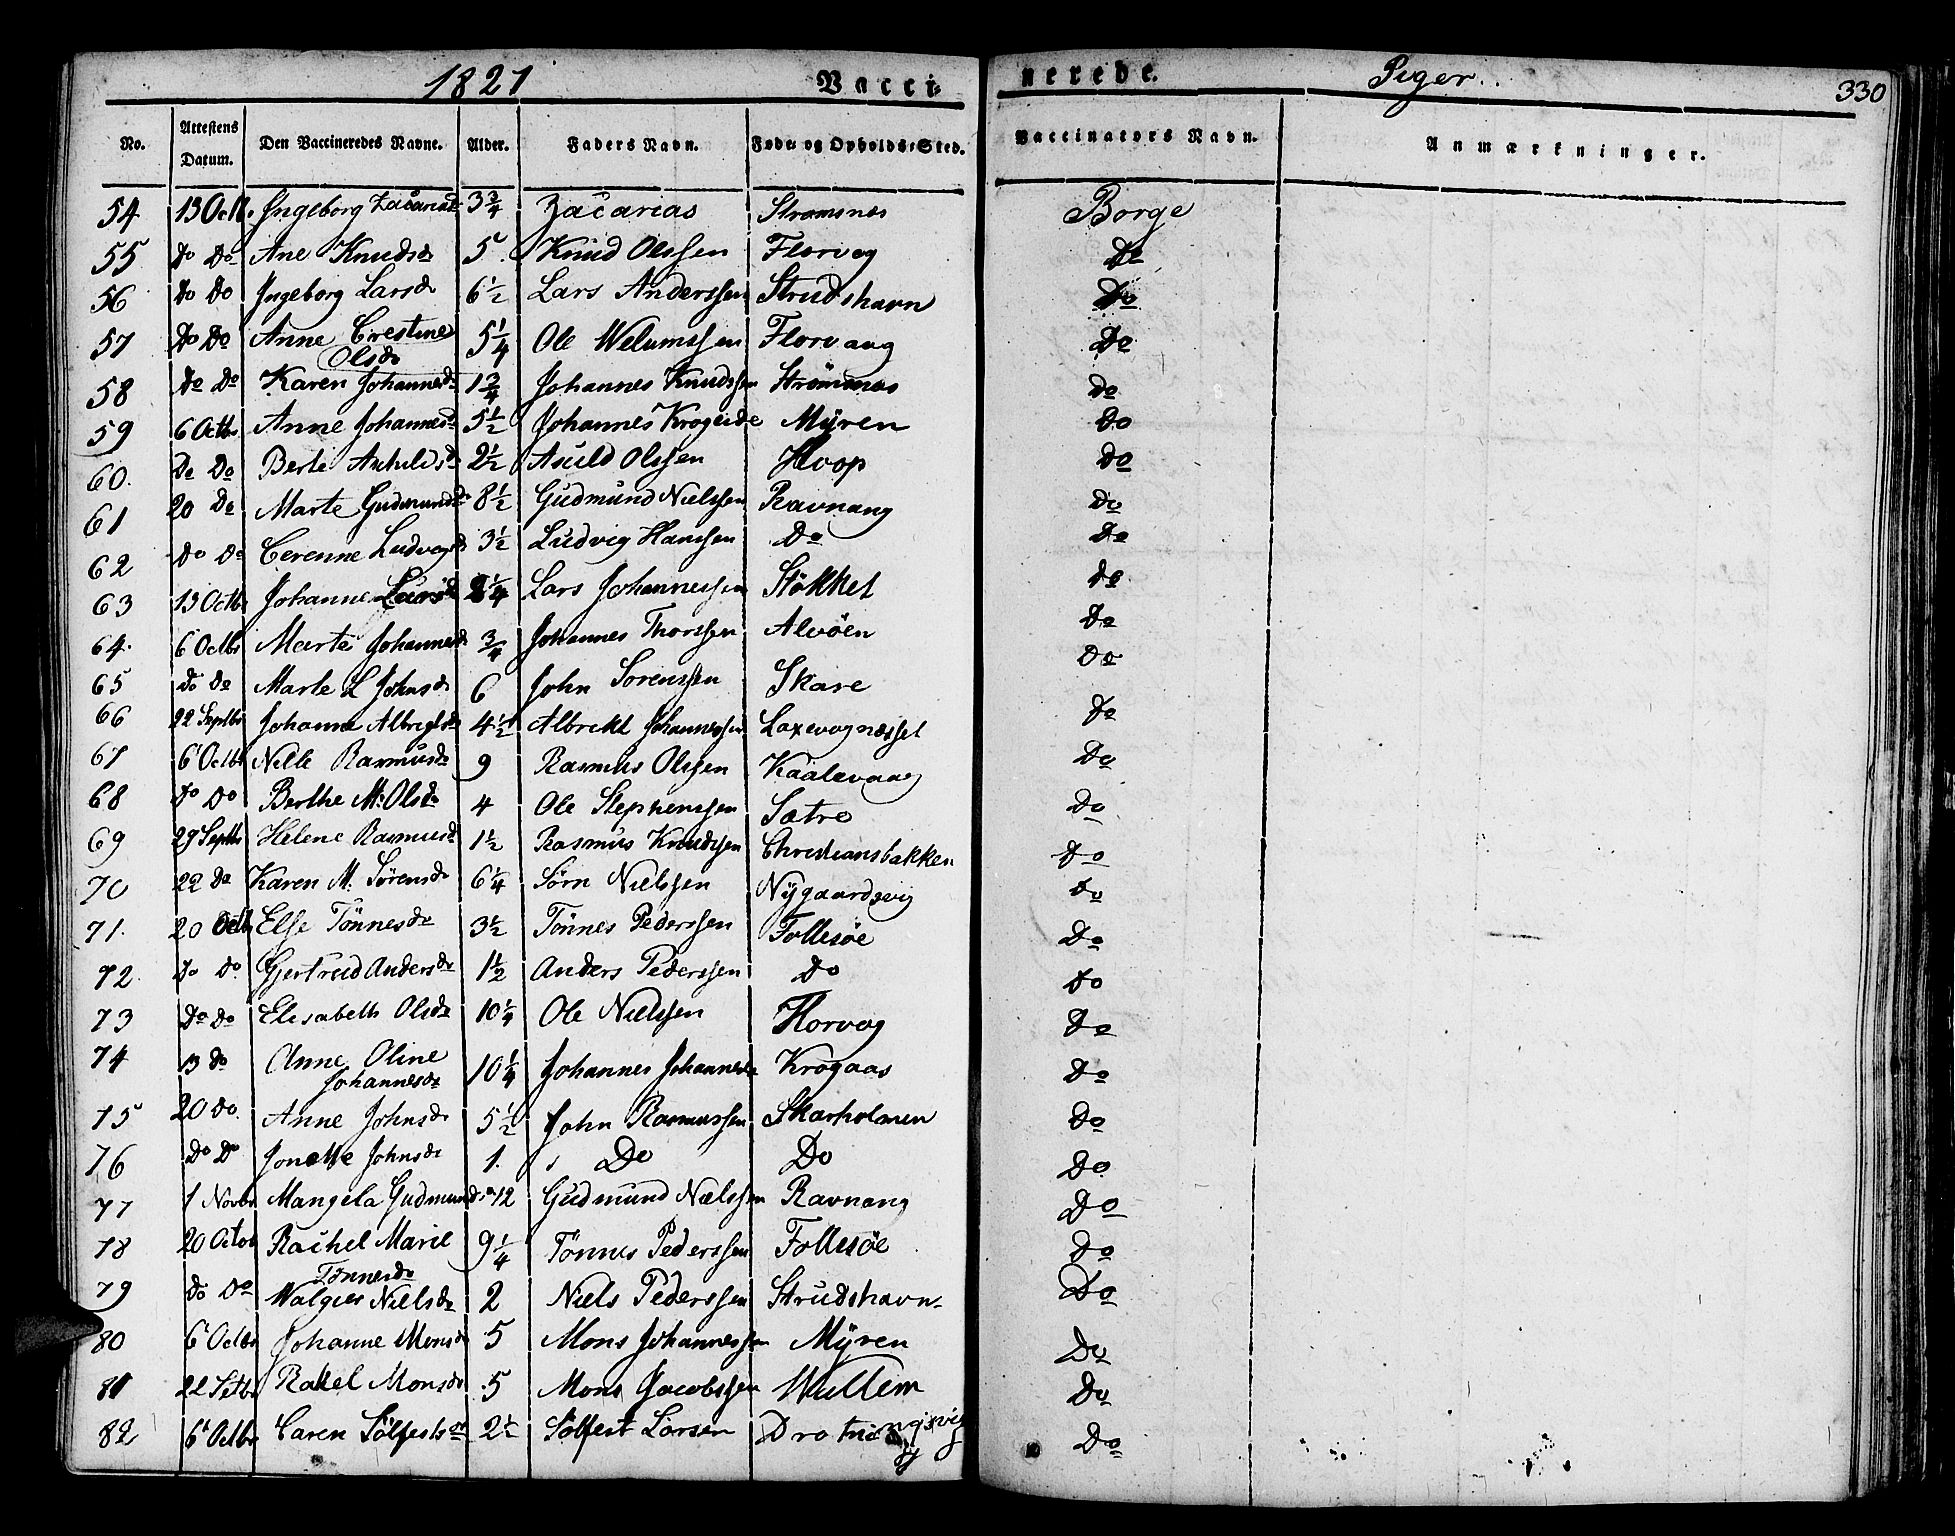 1821 Vacci- nerede. Piger. 330
No. Attestens Datum. Den Vaccineredes Navne. Alder. Faders Navn. Føde- og Opholds-Sted. Vaccinators Navn. Anmærkninger.
54 13 Octb. Ingeborg Zacariasd 3 3/4 Zacarias Strømsnes Borge
55 Do Do Ane Knudsd 5 Knud Olssen Florvog Do
56 Do Do Ingeborg Larsd 6 1/2 Lars Anderssen Strudshavn Do
57 Do Do Anne Crestine 5 1/4 Ole Welumssen Florvaag Do
Olsdr
58 Do Do Karen Johannesd 1 3/4 Johannes Knudssen Strømsnes do
59 6 Octbr Anne Johannesd 5 1/2 Johannes Krogeide Myren Do
60. Do Do Berte Aschildsd 2 1/2 Asuld Olssen Hoop do
61 20 Do Marte Gudmundsd 8 1/2 Gudmund Nielssen Ravnang Do
62 Do Do Cerenne Ludvigsd 3 1/2 Ludvig Hanssen Do Do
63 13 Octbr Johanne Larsd 2 1/4 Lars Johannessen Støkket do
64. 6 Octbr Marte Johannesd 3/4 Johannes Thorssen Alvøen do
65 Do Do Marte L Johnsd 6 John Sorenssen Skare Do
66 22 Septbr Johanne Albrigtsd 4 1/2 Albrekt Johannessen Laxevognesset Do
67 6 Octbr Nille Rasmusd 9 Rasmus Olssen Kaalevaag Do
68 Do Do Berthe M. Olsd 4 Ole Stephenssen Sætre Do
69 29 Septbr Helene Rasmusd 1 1/2 Rasmus Knudssen Christiansbakken Do
70 22 Do Karen M. Sørensd 6 1/4 Sørn Nielssen Nygaardsvig Do
71. 20 Octb Else Tønnesdr 3 1/2 Tønnes Pederssen Follesøe Do
72. Do Do Gertrud Andersd 1 1/2 Anders Pederssen Do Do
73 Do Do Elisabeth Olsd 10 1/4 Ole Nielssen Florvog Do
74 13 do Anne Oline 10 1/4 Johannes Johannessen Krogaas Do
Johannesdr
75 20 Do Anne Johnsd 5 1/2 John Rasmussen Skarholmen Do
76 Do Do Jonette Johnsd 1. Do Do Do
77 1 Novbr Mangela Gudmundsd 12 Gudmund Nielssen Ravnang Do
78 20 Octob Rachel Marie 9 1/4 Tønnes Pederssen Follesøe Do
Tønnesdr
79 Do Do Walgier Nielsd 2 Niels Pederssen Strudshavn Do
80 6 Octbr Johanne Monsd 5 Mons Johannessen Myren Do
81 22 Setbr Rakel Monsd 5 Mons Jacobssen Wullem Do
82 6 Octbr Caren Sølfestsd 2 1/2 Solfest Larsen Drotningsvig Do